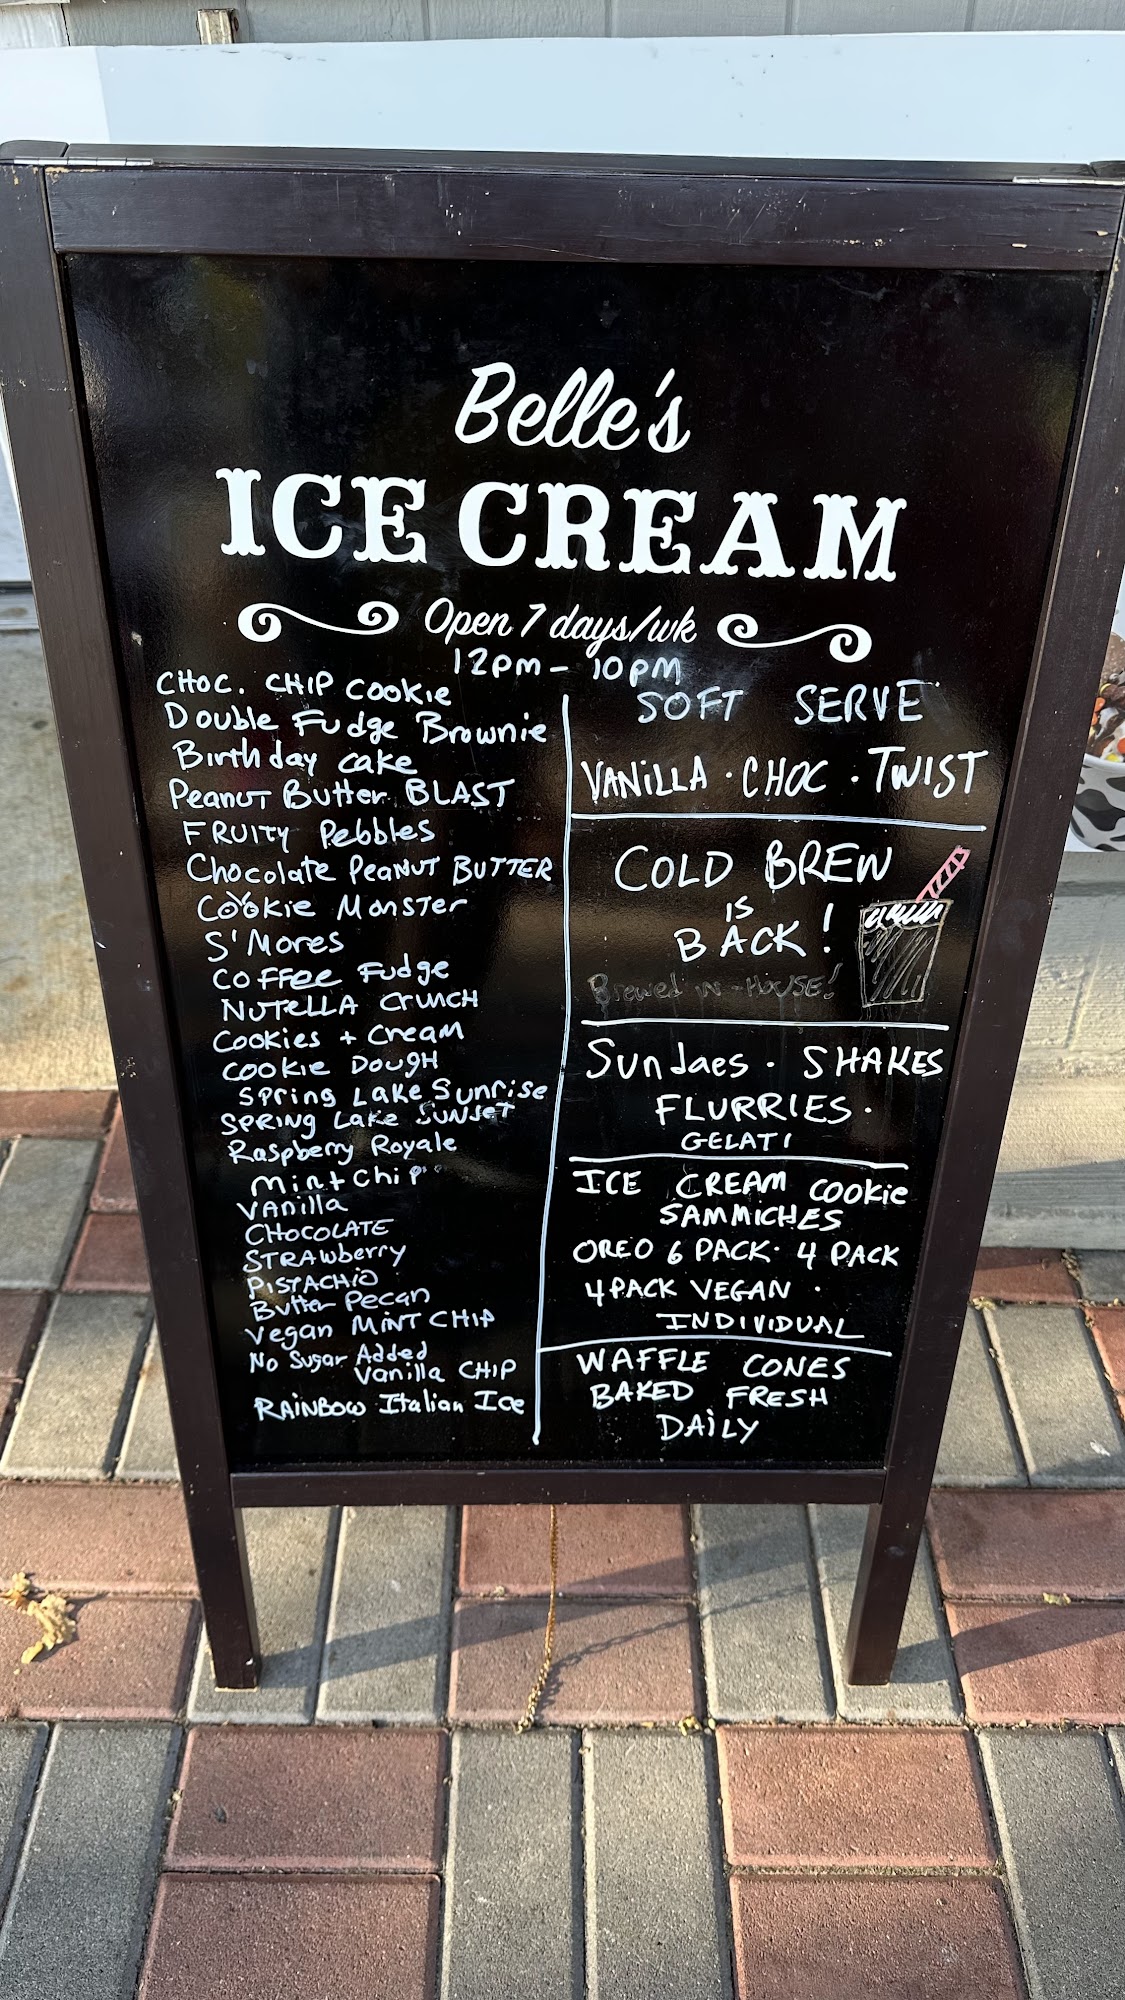 Belle's
ICE CREAM
Open 7 days/wk
12pm - 10pm
CHOC. CHIP Cookie
Double Fudge Brownie
Birthday cake
Peanut Butter BLAST
FRUITY Pebbles
Chocolate Peanut BUTTER
Cookie Monster
S'Mores
Coffee Fudge
NUTELLA CRUNCH
Cookies + Cream
Cookie Dough
Spring Lake Sunrise
SPRING Lake SUNSET
Raspberry Royale
Mint Chip
Vanilla
CHOCOLATE
STRAwberry
PISTACHIO
Butter Pecan
Vegan MINT CHIP
No Sugar Added
Vanilla CHIP
RAINBOW Italian Ice
SOFT SERVE
VANILLA · CHOC · TWIST
COLD BREW
IS
BACK!
Brewed in-House!
Sundaes · SHAKES
FLURRIES ·
GELATI
ICE CREAM Cookie
SAMMICHES
OREO 6 PACK · 4 PACK
4 PACK VEGAN ·
INDIVIDUAL
WAFFLE CONES
BAKED FRESH
DAILY